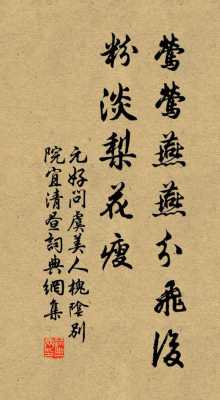 鶯鶯燕燕分飛後
粉淡梨花瘦
元好問虞美人槐陰別
院宜清晝詞典網集